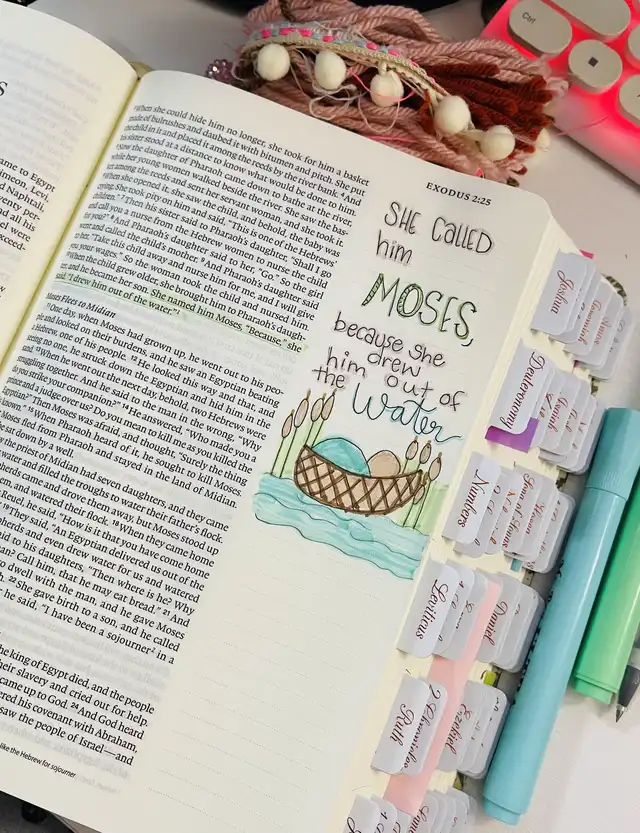 Ctrl
EXODUS 2:25
When she could hide him no longer, she took for him a basket
made of bulrushes and daubed it with bitumen and pitch. She put
the child in it and placed it among the reeds by the river bank. 4 And
his sister stood at a distance to know what would be done to him.
5 Now the daughter of Pharaoh came down to bathe at the river,
while her young women walked beside the river. She saw the bas-
ket among the reeds and sent her servant woman, and she took it.
6 When she opened it, she saw the child, and behold, the baby was
crying. She took pity on him and said, "This is one of the Hebrews'
children." 7 Then his sister said to Pharaoh's daughter, "Shall I go
and call you a nurse from the Hebrew women to nurse the child
for you?" 8 And Pharaoh's daughter said to her, "Go." So the girl
went and called the child's mother. 9 And Pharaoh's daughter said
to her, "Take this child away and nurse him for me, and I will give
you your wages." So the woman took the child and nursed him.
10 When the child grew older, she brought him to Pharaoh's daugh-
ter, and he became her son. She named him Moses, "Because," she
said, "I drew him out of the water."
Moses Flees to Midian
11 One day, when Moses had grown up, he went out to his peo-
ple and looked on their burdens, and he saw an Egyptian beating
a Hebrew, one of his people. 12 He looked this way and that, and
seeing no one, he struck down the Egyptian and hid him in the
13 When he went out the next day, behold, two Hebrews were
struggling together. And he said to the man in the wrong, "Why
do you strike your companion?" 14 He answered, "Who made you a
prince and a judge over us? Do you mean to kill me as you killed the
Egyptian?" Then Moses was afraid, and thought, "Surely the thing
known." 15 When Pharaoh heard of it, he sought to kill Moses.
Moses fled from Pharaoh and stayed in the land of Midian.
he sat down by a well.
the priest of Midian had seven daughters, and they came
water and filled the troughs to water their father's flock.
herds came and drove them away, but Moses stood up
and watered their flock. 18 When they came home
Reuel, he said, "How is it that you have come home
They said, "An Egyptian delivered us out of the
herds and even drew water for us and watered
said to his daughters, "Then where is he? Why
man? Call him, that he may eat bread." 21 And
to dwell with the man, and he gave Moses
22 She gave birth to a son, and he called
he said, "I have been a sojourner 2 in a
the king of Egypt died, and the people
their slavery and cried out for help.
came up to God. 24 And God heard
his covenant with Abraham,
saw the people of Israel—and
like the Hebrew for sojourner
SHE CALLED
him
MOSES,
because she
drew
him out of
the Water
Joshua
Deuteronomy
Numbers
Leviticus
Daniel
Ruth
Ezekiel